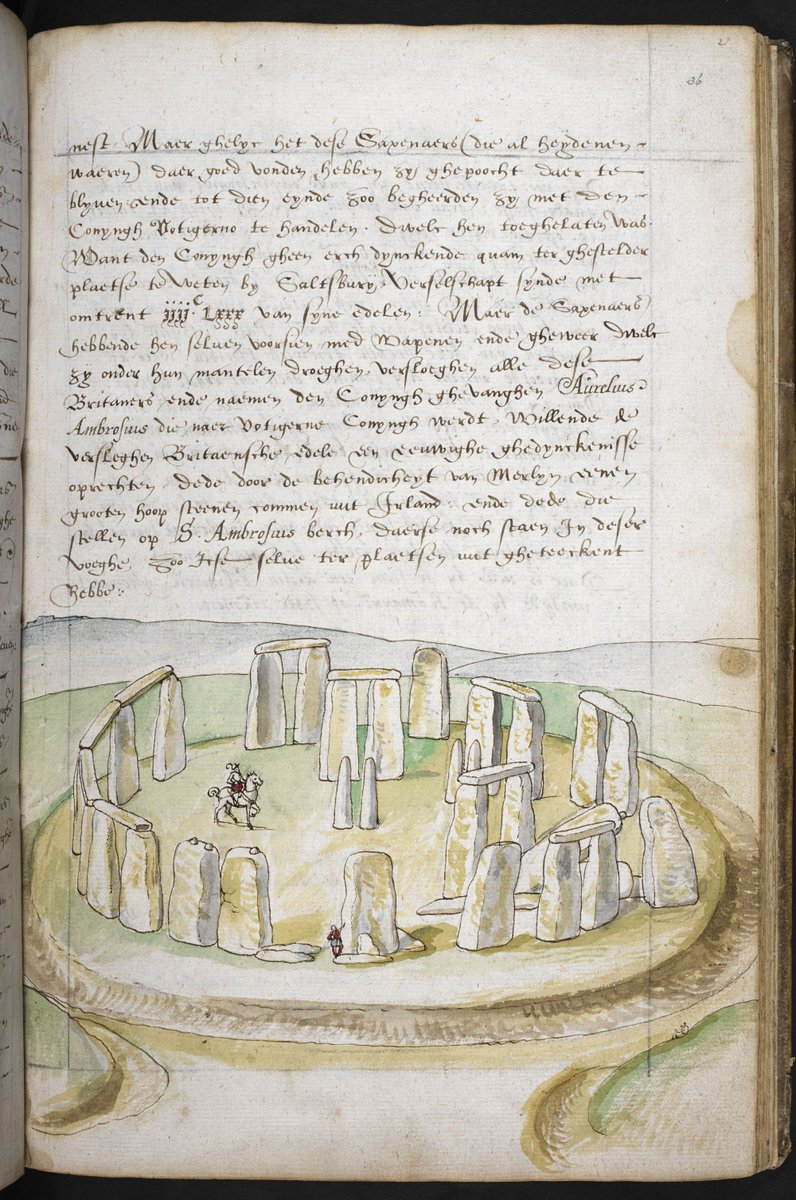 36
nest. Maer ghelyc het dese Saxenaers (die al heydenen
waeren) daer goed vonden, hebben zy ghepoocht daer te
blyven ende tot dien eynde zoo begheerden zy met den
Conyngh Votigerno te handelen. dwelc hen toeghelaten was.
Want den Conyngh gheen erch dynckende quam ter ghestelder
plaetse te weten by Saltsbury, verselschapt synde met
omtrent iiiiC Lxxx van syne edelen. Maer de Saxenaers
hebbende hen selven voorsien med wapenen ende gheweer dwelc
zy onder hun mantelen droeghen, versloeghen alle dese
Britaners ende naemen den Conyngh ghevanghen. Aurelius
Ambrosius die naer Votigerne Conyngh werdt, willende de
versleghen Britaensche edele een eeuwighe ghedynckenisse
oprechten, dede door de behendicheyt van Merlyn eenen
grooten hoop steenen commen uut Irland: ende dede die
stellen op S. Ambrosius berch, daerse noch staen In deser
voeghe, zoo Icse selve ter plaetsen uut gheteeckent
hebbe: